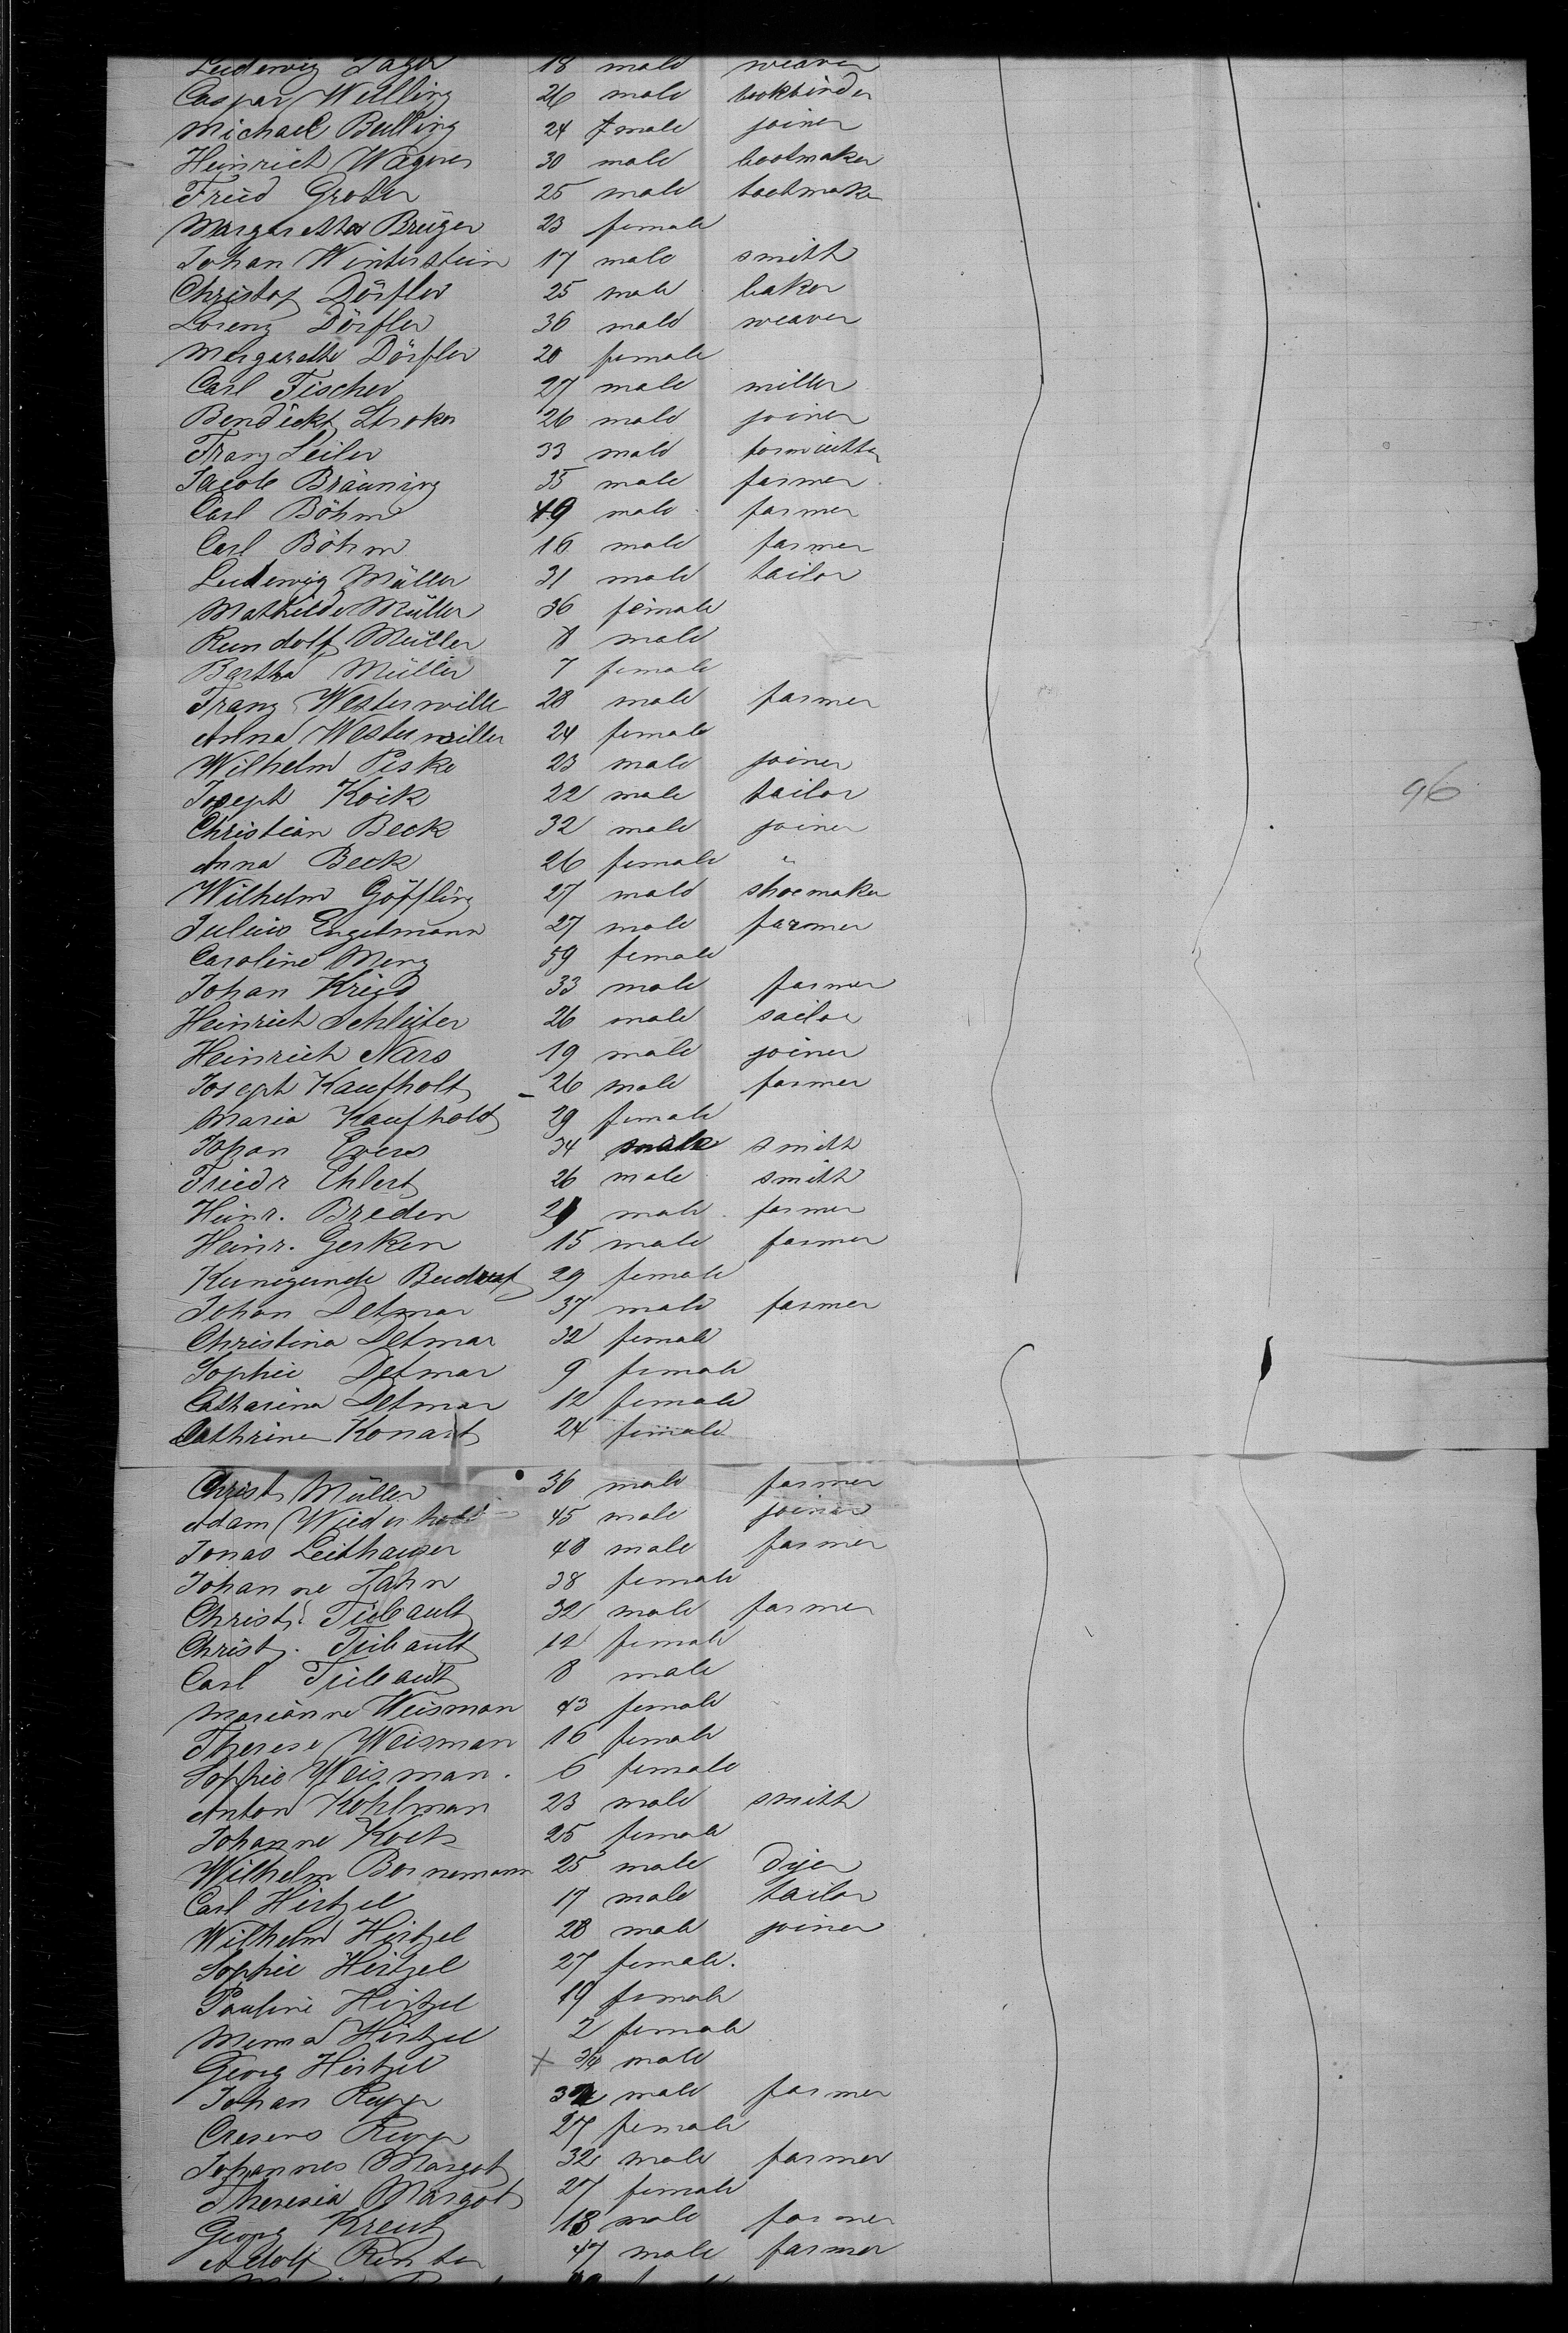 Ludewig 18 male weaver
Caspar Welling 26 male bookbinder
Michael Bulling 24 male joiner
Heinrich Wagner 30 male bootmaker
Fried Grober 25 male bootmaker
Margaretha Brüger 23 female
Johan Winterstein 17 male smith
Christof Dörfler 25 male baker
Lorenz Dörfler 36 male weaver
Margarethe Dörfler 20 female
Carl Fischer 27 male miller
Bendickt Stroker 26 male joiner
Franz Seiler 33 male
Jacob Bräuning 35 male farmer
Carl Böhm 49 male farmer
Carl Böhm 16 male farmer
Ludewig Müller 31 male tailor
Mathilde Müller 36 female
Rundolf Müller 8 male
Bertha Müller 7 female
Franz Westerwille 28 male farmer
Anna Westerwiller 24 female
Wilhelm Peske 23 male joiner
Joseph Koik 22 male tailor
96
Christian Beck 32 male joiner
Anna Beck 26 female "
Wilhelm Göffling 27 male shoemaker
Julius Engelmann 27 male farmer
Caroline Menz 59 female
Johan Kried 33 male farmer
Heinrich Schlüter 26 male sailor
Heinrich Nars 19 male joiner
Joseph Kaufholt 26 male farmer
Maria Kaufhold 29 female
Johan Evers 34 male smith
Friedr Ehlert 26 male smith
Heinr. Breden 21 male farmer
Heinr. Gerken 15 male farmer
Kunegunde 29 female
Johan Detmar 37 male farmer
Christina Detmar 32 female
Sophie Detmar 9 female
Catharina Detmar 12 female
Cathrine Konart 24 female
Christ Müller 36 male farmer
Adam Wiederhold 45 male joiner
Jonas Leithauser 40 male farmer
Johanne Zahn 38 female
Christ. Tiebault 32 male farmer
Christ. Tiebault 12 female
Carl Tiebault 8 male
Marianne Weisman 43 female
Therese Weisman 16 female
Sophie Weisman. 6 female
Anton Kohlman 23 male smith
Johanne Koch 25 female
Wilhelm Bornemann 25 male dyer
Carl Hirtzel 17 male tailor
Wilhelm Hirtzel 28 male joiner
Sophie Hirtzel 27 female.
Pauline Hirtzel 19 female
Minna Hirtzel 2 female
Georg Hirtzel x male
Johan Rupp male farmer
Cresens Rupp 27 female
Johannes Margot 32 male farmer
Theresia Margot 27 female
Georg Kreut 18 male farmer
Adolf Rinter 47 male farmer